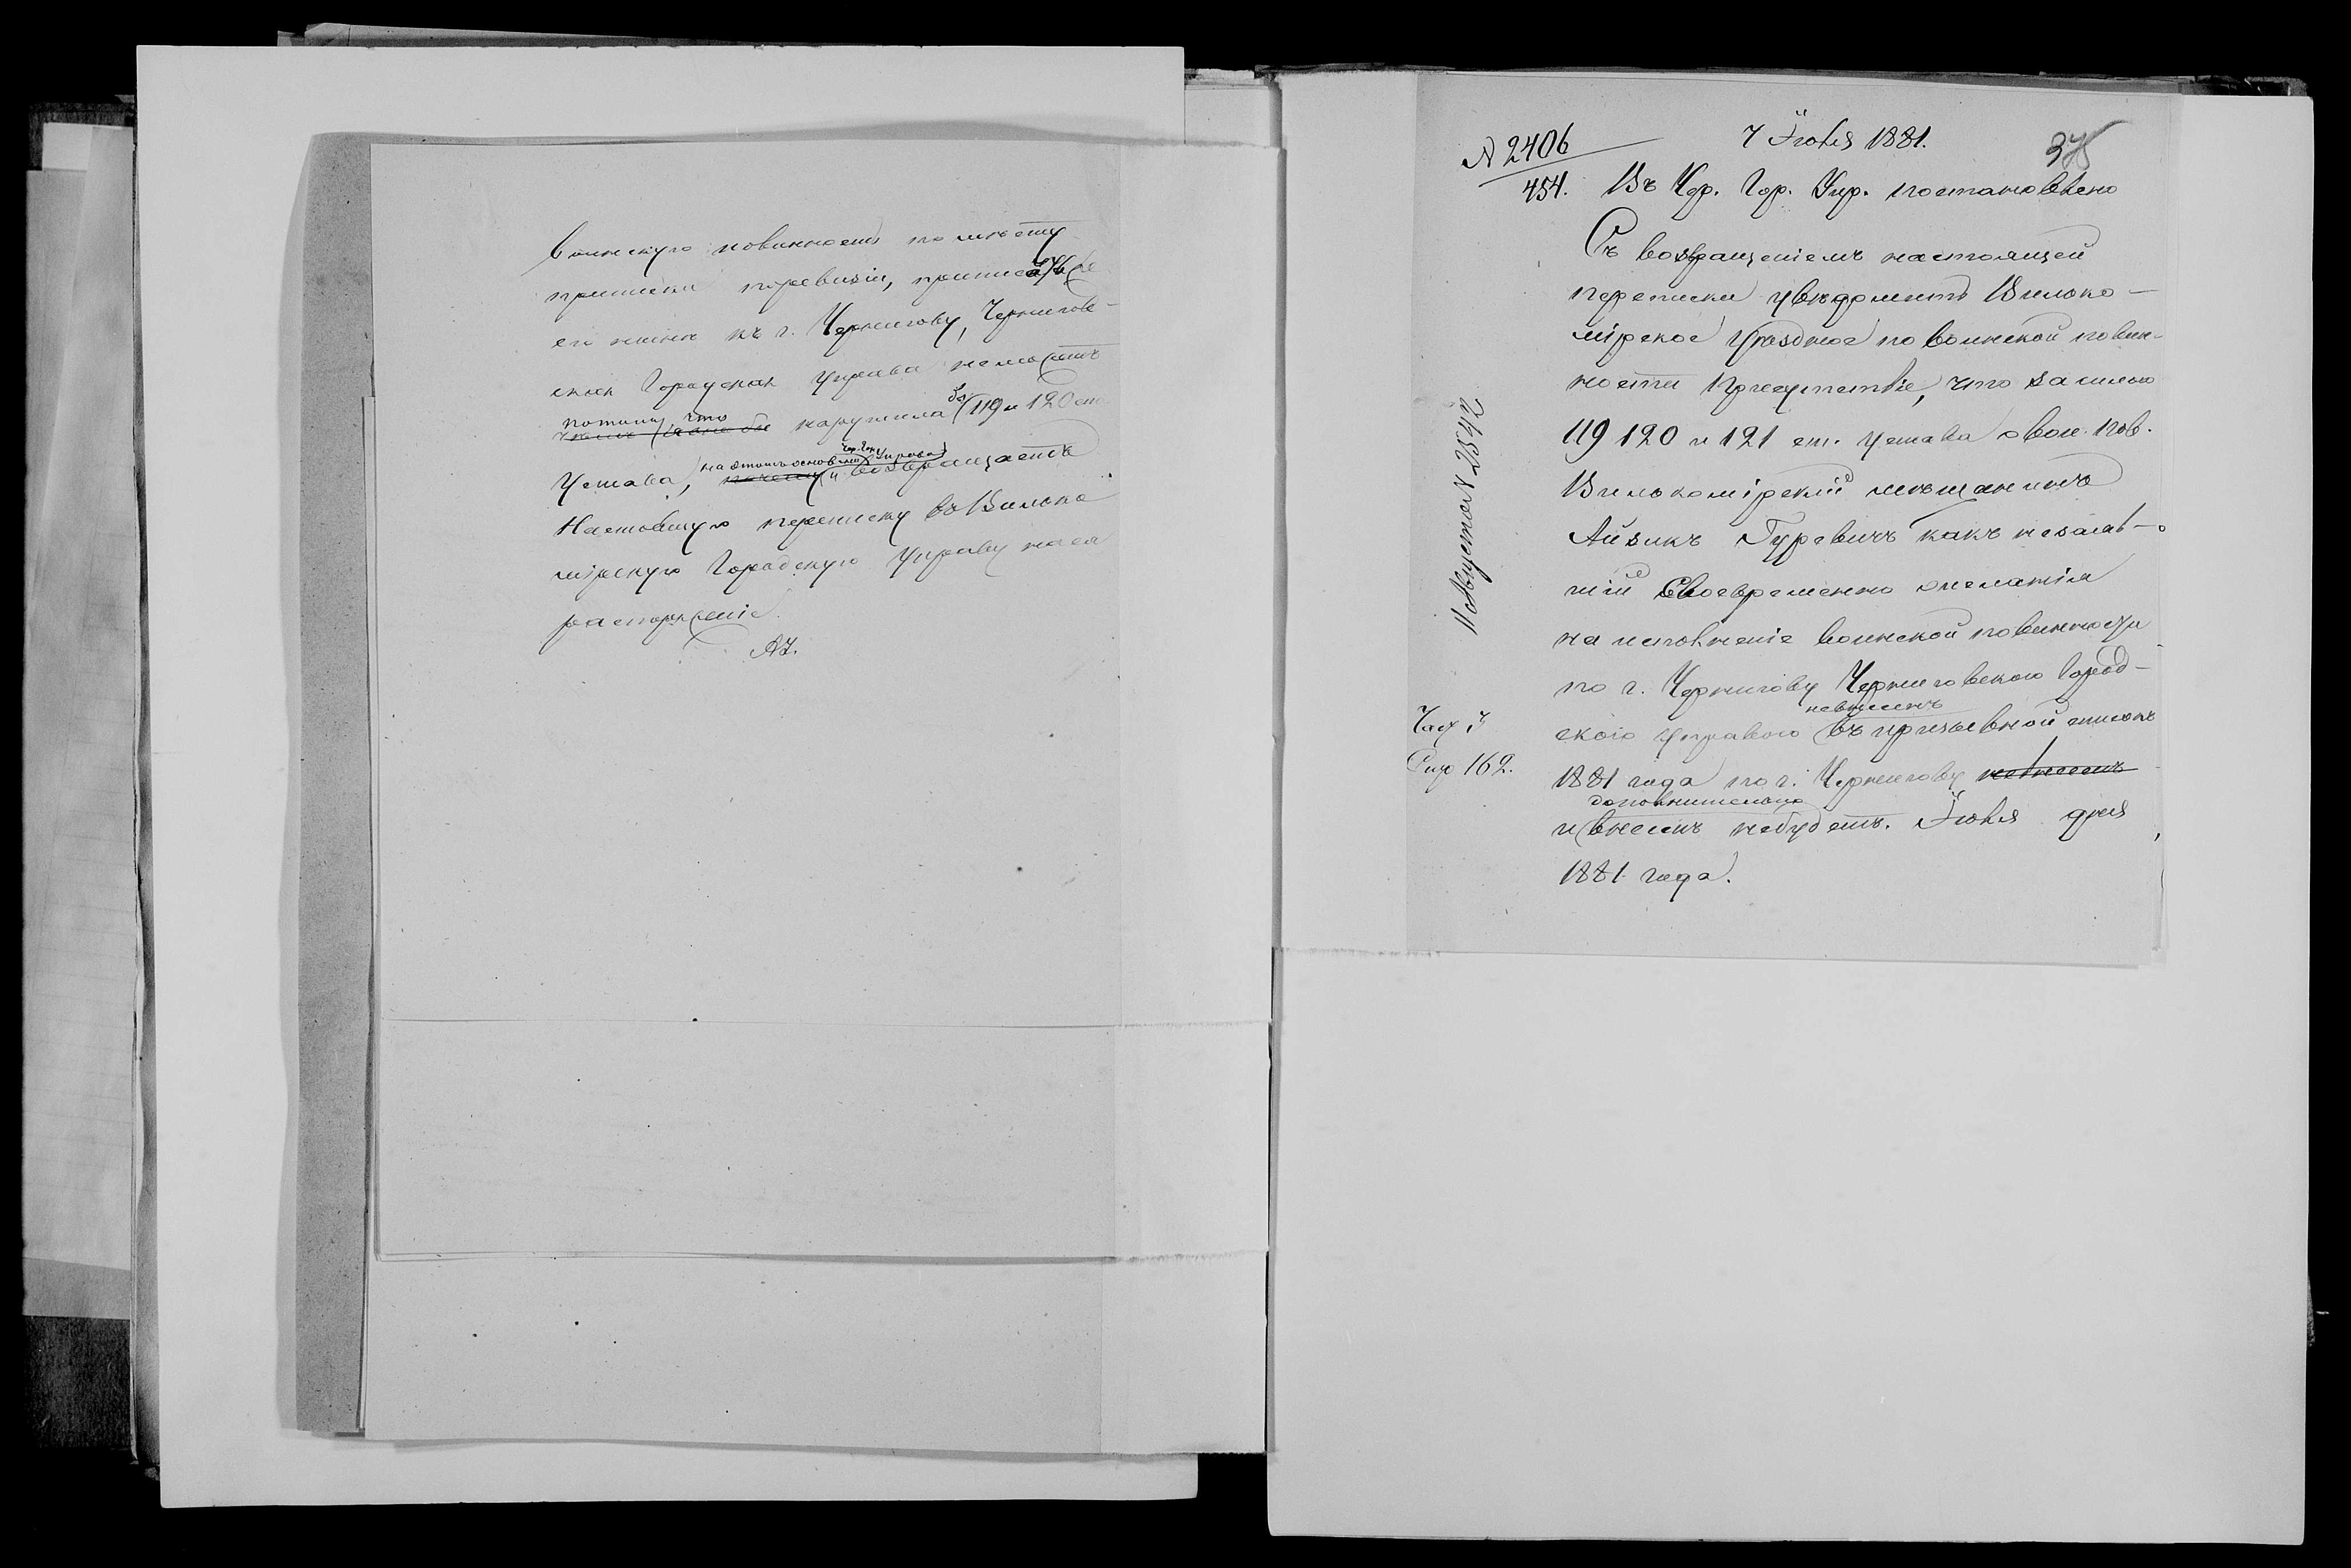 воинскую повинность по мѣсту
приписки ревизіи, приписать же
его нынѣ къ г. Чернигову, Чернигов-
ская Городская Управа не можетъ
потому, что нарушила бы 119 и 120 ст.
Устава, на этомъ основаніи Чер. Гор. Управа и возвращаетъ
Настоящую переписку въ Вилько
мірскую Городскую Управу на ея
распоряженіе.
№ 2406
454.
7 Іюля 1881.
375
Въ Чер. Гор. Упр. постановлено
Съ возвращеніемъ настоящей
переписки увѣдомить Вилько-
мірское Уѣздное по воинской повин-
ности Присутствіе, что за силою
119 120 и 121 ст. Устава о воин. пов.
Вилькомірскій мѣщанинъ
Айзикъ Гуревичъ какъ не заяв-
шій своевременно желанія
на исполненіе воинской повинности
по г. Чернигову Черниговскою Город-
скою Управою невнесенъ въ призывной списокъ
1881 года по г. Чернигову невнесенъ
и дополнительно внесенъ небудетъ. Іюля дня
1881 года.
11 Августа № 2542
162.